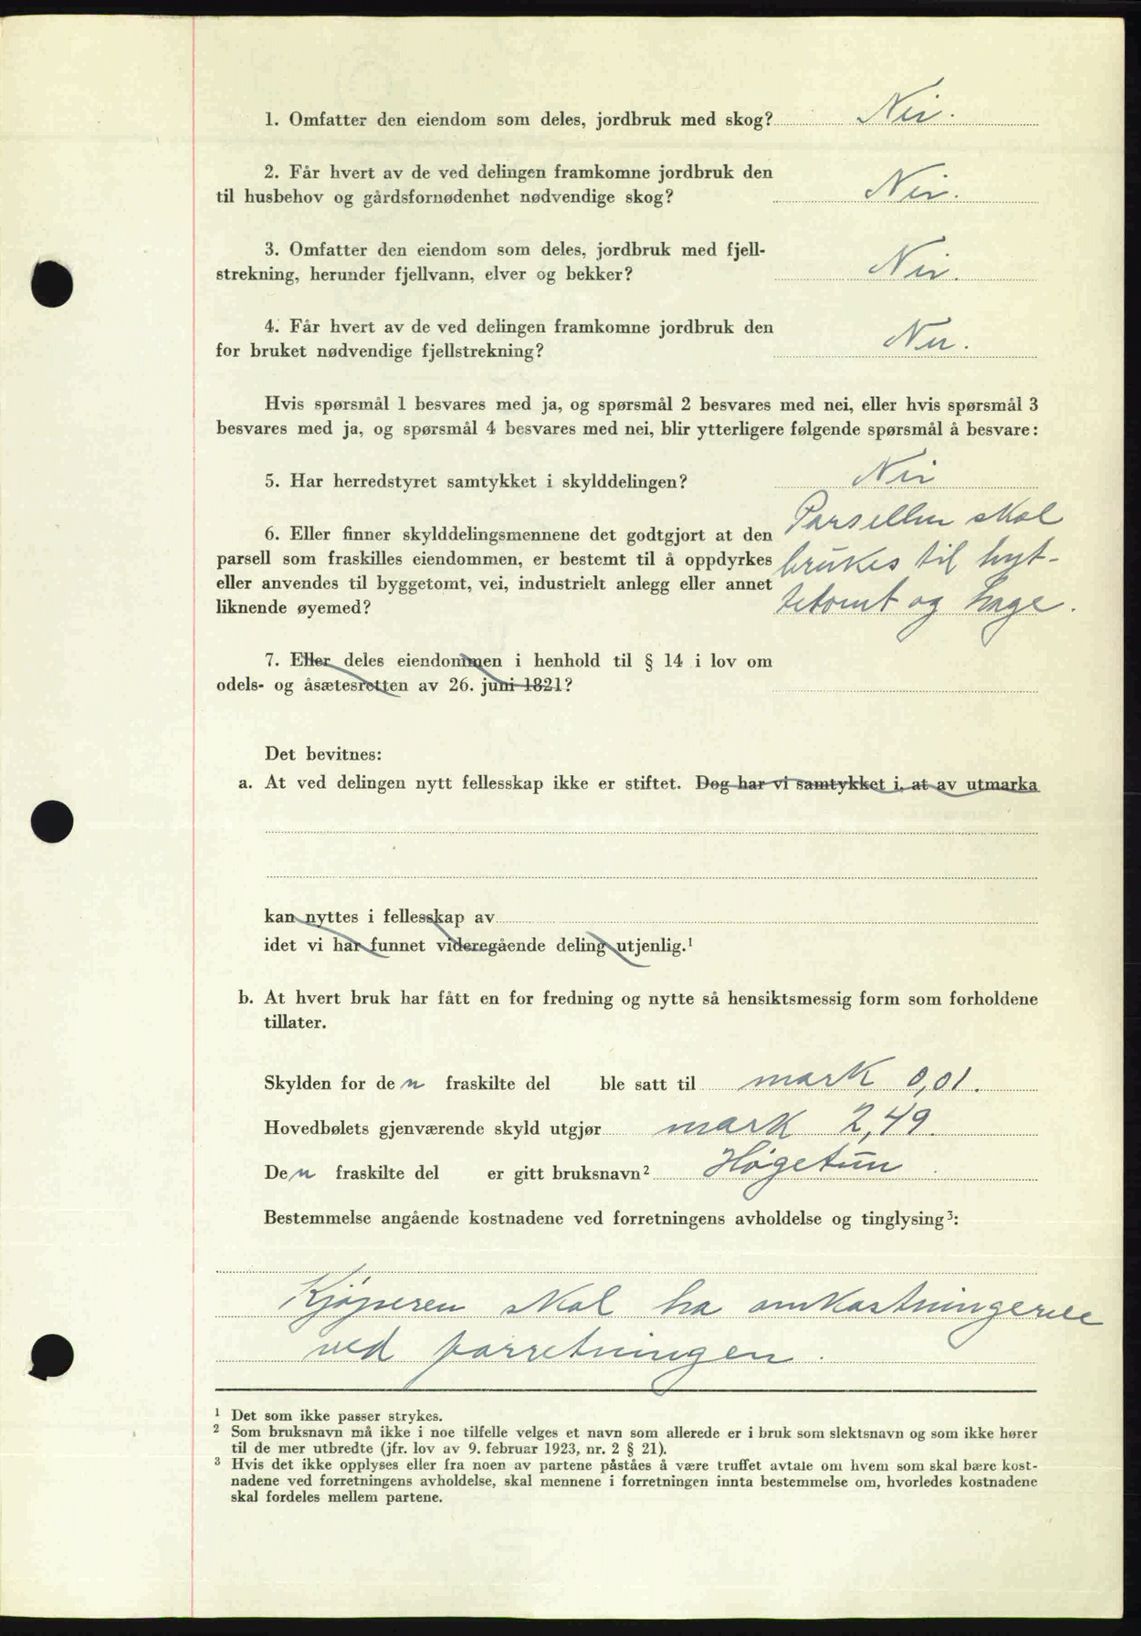 1. Omfatter den eiendom som deles, jordbruk med skog? Nei.
2. Får hvert av de ved delingen framkomne jordbruk den
til husbehov og gårdsfornødenhet nødvendige skog? Nei.
3. Omfatter den eiendom som deles, jordbruk med fjell-
strekning, herunder fjellvann, elver og bekker? Nei.
4. Får hvert av de ved delingen framkomne jordbruk den
for bruket nødvendige fjellstrekning? Nei.
Hvis spørsmål 1 besvares med ja, og spørsmål 2 besvares med nei, eller hvis spørsmål 3
besvares med ja, og spørsmål 4 besvares med nei, blir ytterligere følgende spørsmål å besvare:
5. Har herredstyret samtykket i skylddelingen? Nei
6. Eller finner skylddelingsmennene det godtgjort at den
parsell som fraskilles eiendommen, er bestemt til å oppdyrkes
eller anvendes til byggetomt, vei, industrielt anlegg eller annet
liknende øyemed?
Parsellen skal
brukes til hyt-
tetomt og hage.
7. Eller deles eiendommen i henhold til § 14 i lov om
odels- og åsætesretten av 26. juni 1821?
Det bevitnes:
a. At ved delingen nytt fellesskap ikke er stiftet. Dog har vi samtykket i, at av utmarka
kan nyttes i fellesskap av
idet vi har funnet videregående deling utjenlig.¹
b. At hvert bruk har fått en for fredning og nytte så hensiktsmessig form som forholdene
tillater.
Skylden for den fraskilte del ble satt til mark 0,01.
Hovedbølets gjenværende skyld utgjør mark 2,49.
Den fraskilte del er gitt bruksnavn² Høgetun.
Bestemmelse angående kostnadene ved forretningens avholdelse og tinglysing³:
Kjøperen skal ha omkostningerne
ved forretningen.
¹ Det som ikke passer strykes.
² Som bruksnavn må ikke i noe tilfelle velges et navn som allerede er i bruk som slektsnavn og som ikke hører
til de mer utbredte (jfr. lov av 9. februar 1923, nr. 2 § 21).
³ Hvis det ikke opplyses eller fra noen av partene påståes å være truffet avtale om hvem som skal bære kost-
nadene ved forretningens avholdelse, skal mennene i forretningen innta bestemmelse om, hvorledes kostnadene
skal fordeles mellem partene.